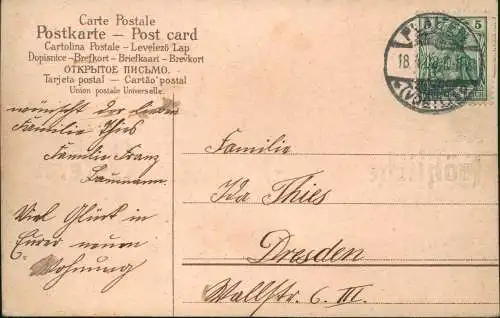 Carte Postale
Postkarte — Post card
Cartolina Postale — Levelező Lap
Dopisnice — Brefkort — Briefkaart — Brevkort
ОТКРЫТОЕ ПИСЬМО.
Tarjeta postal — Cartão postal
Union postale Universelle.
5
PLAUEN
18.
(VOGTL)
wünscht der lieben
Familie Thies
Familie Franz
Baumann.
Viel Glück in
Eurer neuen
Wohnung
Familie
Thies
Dresden
Wallstr. 6. III.